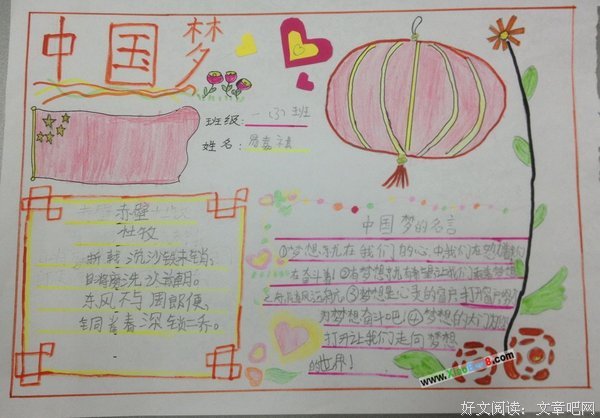 中国梦
班级：一（3）班
姓名：
赤壁
杜牧
折戟沉沙铁未销，
自将磨洗认前朝。
东风不与周郎便，
铜雀春深锁二乔。
中国梦的名言
①梦想就在我们的心中我们在努力
在奋斗着！②有梦想就有希望让我们乘着梦想
③梦想是心灵的窗户打开窗户
为梦想奋斗吧！④梦想的大门
打开让我们走向梦想
的世界！
好文阅读：文章吧网